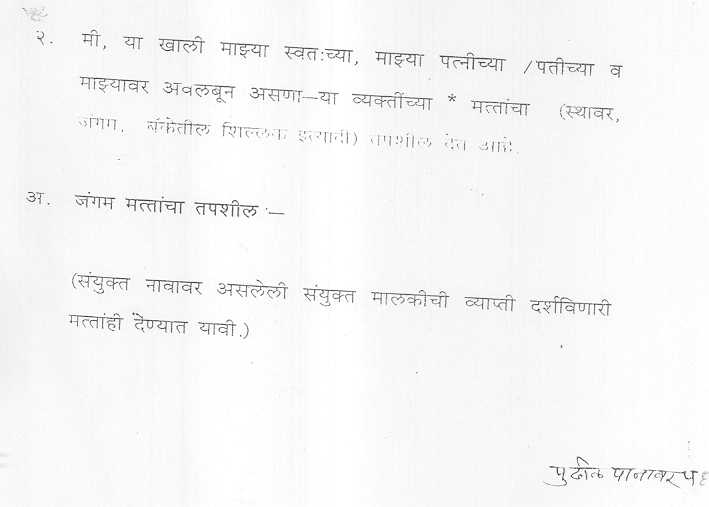 २. मी, या खाली माझ्या स्वतःच्या, माझ्या पत्नीच्या /पतीच्या व
माझ्यावर अवलबून असणा–या व्यक्तींच्या * मत्तांचा (स्थावर,
जंगम, बँकेतील शिल्लक इत्यादी) तपशील देत आहे.
अ. जंगम मत्तांचा तपशील :–
(संयुक्त नावावर असलेली संयुक्त मालकीची व्याप्ती दर्शविणारी
मत्तांही देण्यात यावी.)
पुढील पानावर